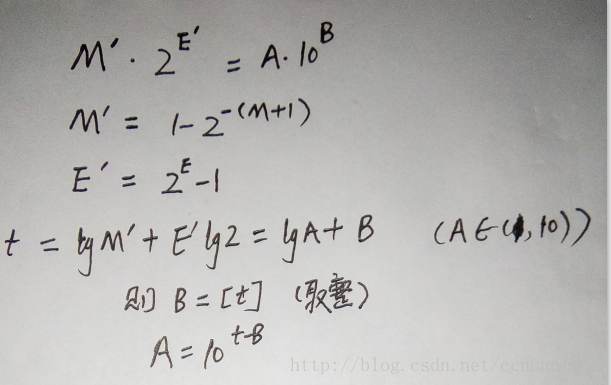 M′ · 2^E′ = A · 10^B
M′ = 1 - 2^-(M+1)
E′ = 2^E - 1
t = lg M′ + E′ lg 2 = lg A + B (A ∈ (1, 10))
则 B = [t] (取整)
A = 10^t-B
http://blog.csdn.net/